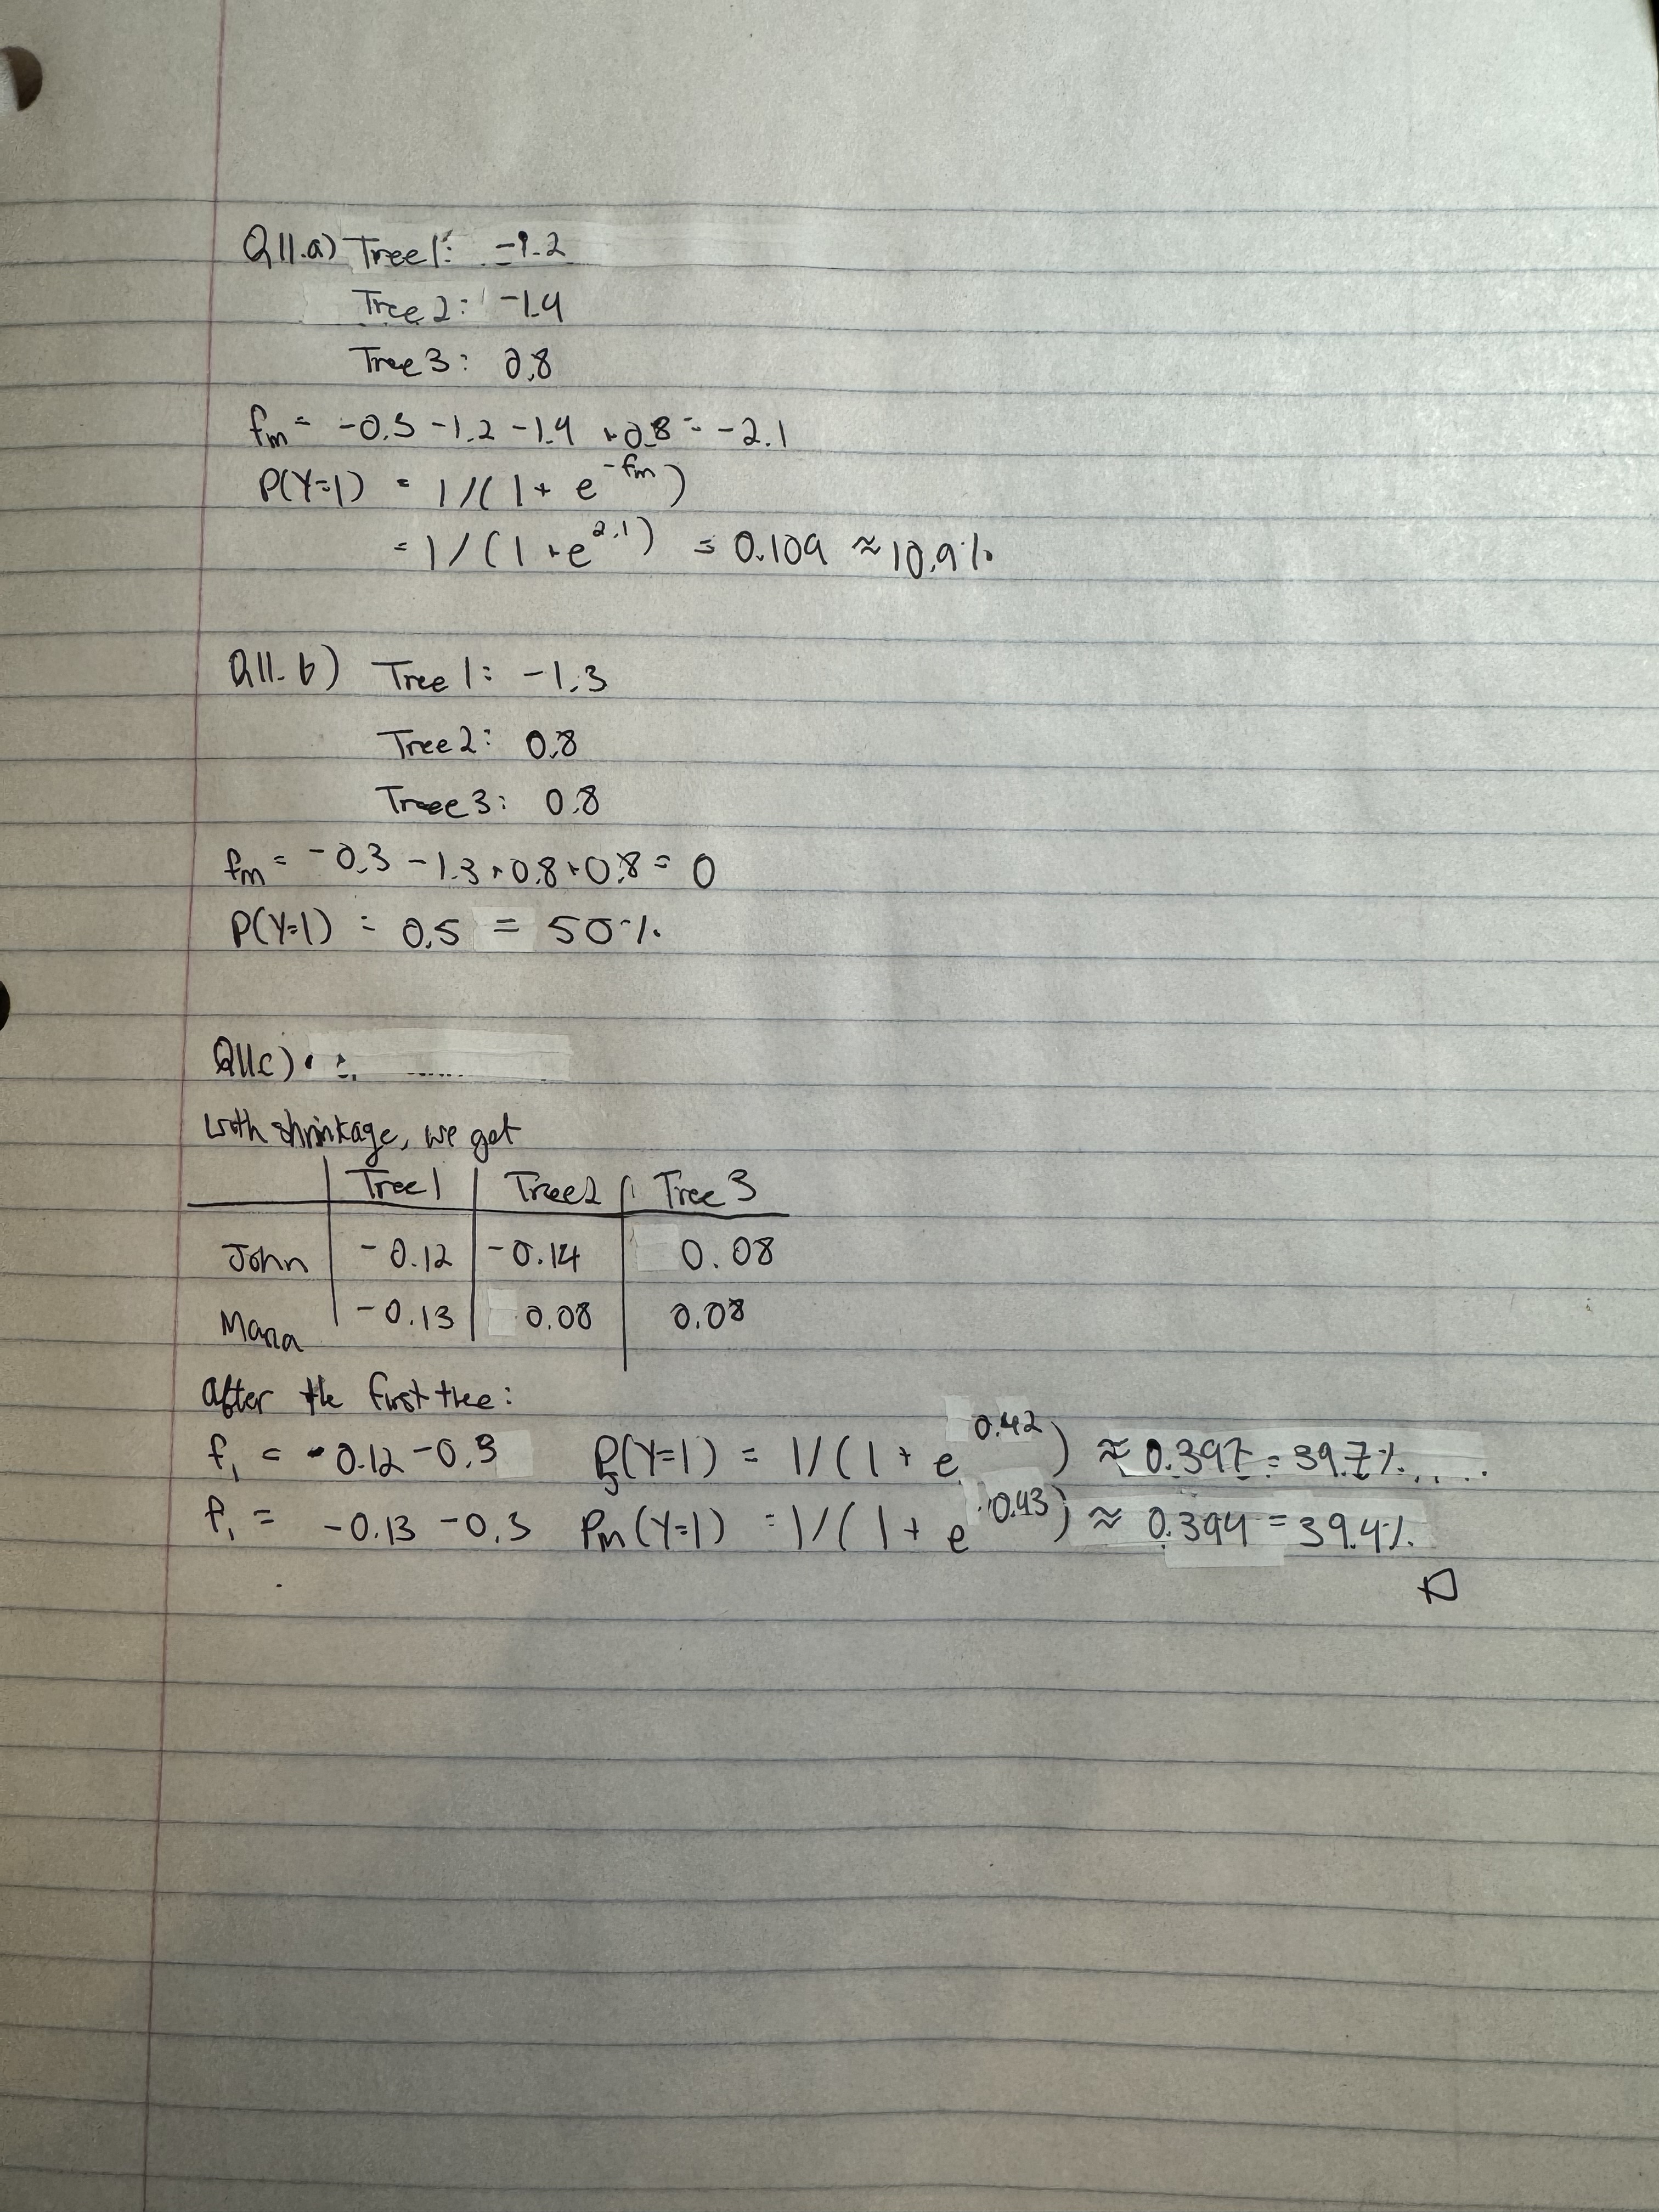 Q11.a) Tree 1: -1.2
Tree 2: -1.4
Tree 3: 0.8
fm = -0.3 -1.2 -1.4 +0.8 = -2.1
P(Y=1) = 1/(1+ e^-fm)
= 1/(1+e^2.1) = 0.109 ≈ 10.9%
Q11.b) Tree 1: -1.3
Tree 2: 0.8
Tree 3: 0.8
fm = -0.3 -1.3+0.8+0.8 = 0
P(Y=1) = 0.5 = 50%
Q11c)
with shrinkage, we get
Tree 1 Tree 2 Tree 3
John -0.12 -0.14 0.08
Maria -0.13 0.08 0.08
after the first tree:
f₁ = -0.12 -0.3 PJ(Y=1) = 1/(1+ e^0.42) ≈ 0.397 = 39.7%
f₁ = -0.13 -0.3 Pm(Y=1) = 1/(1+ e^0.43) ≈ 0.394 = 39.4%